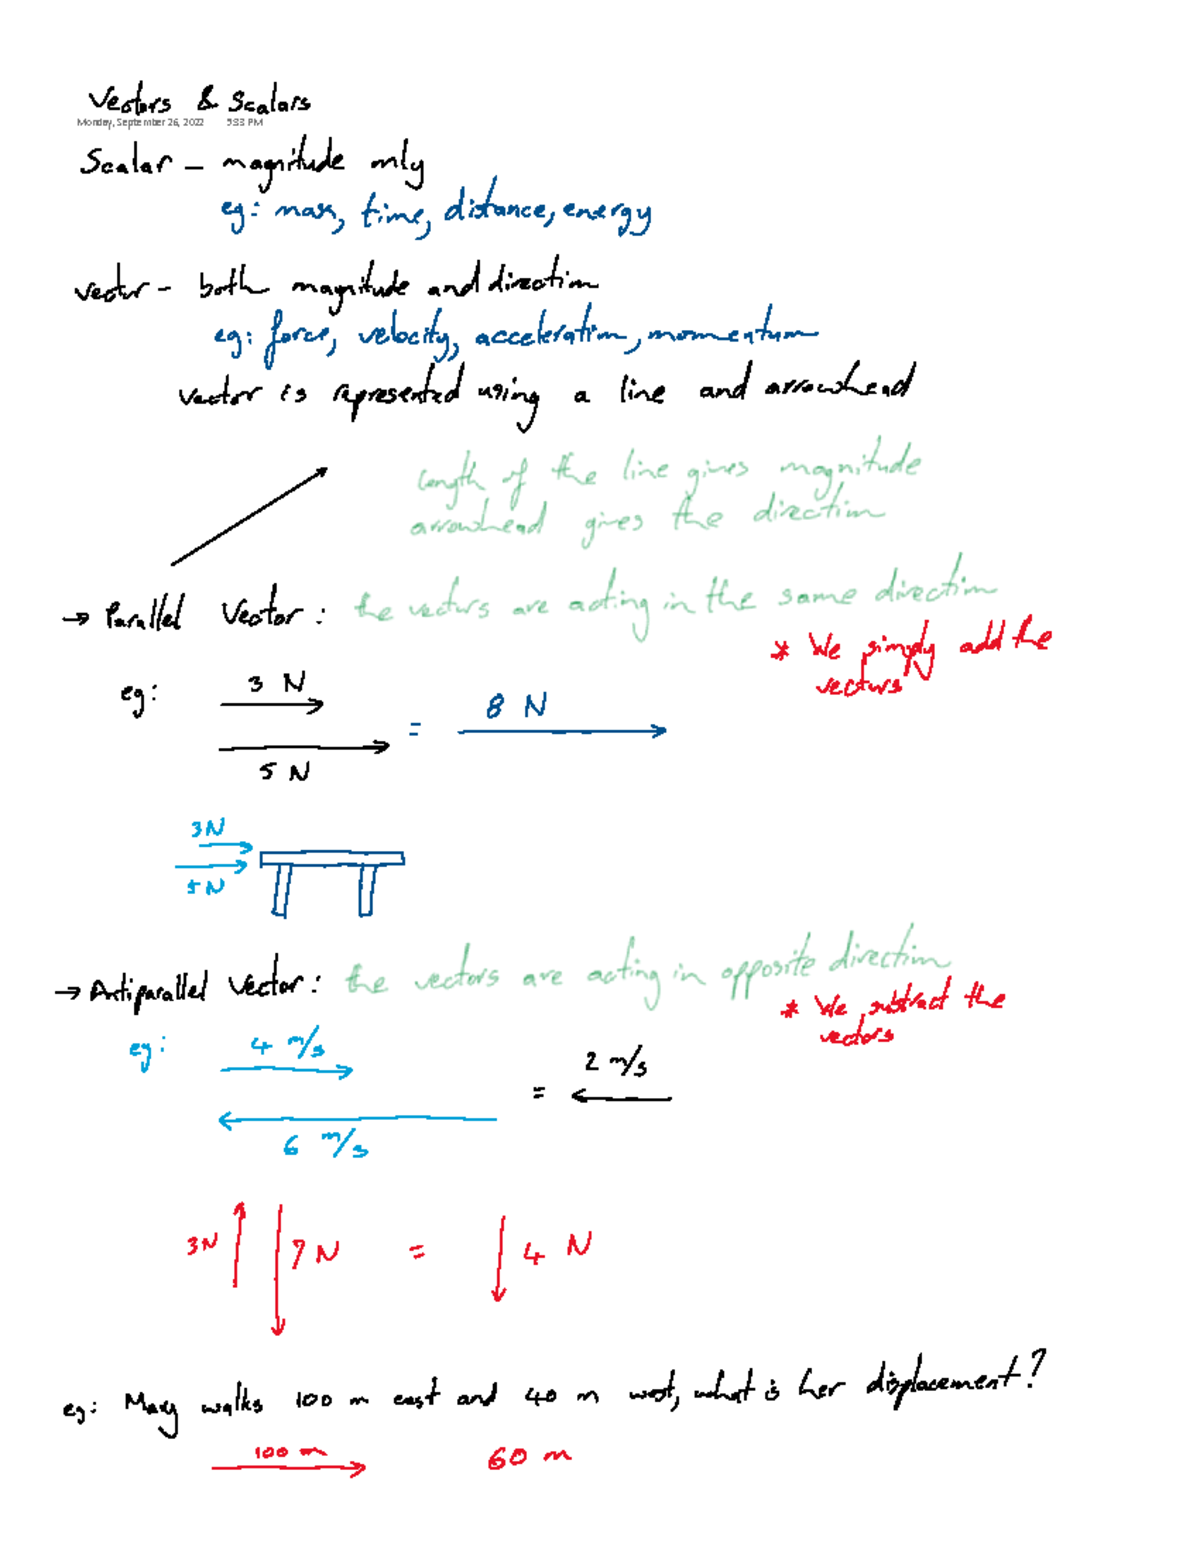 Vectors & Scalars
Monday, September 26, 2022 5:33 PM
Scalar - magnitude only
eg: mass, time, distance, energy
Vector - both magnitude and direction
eg: force, velocity, acceleration, momentum
Vector is represented using a line and arrowhead
length of the line gives magnitude
arrowhead gives the direction
→ Parallel Vector: the vectors are acting in the same direction
* We simply add the
vectors
eg: 3 N
= 8 N
5 N
3N
5N
→ Antiparallel Vector: the vectors are acting in opposite direction
* We subtract the
vectors
eg: 4 m/s
= 2 m/s
6 m/s
3N 7 N = 4 N
eg: Mary walks 100 m east and 40 m west, what is her displacement?
100 m 60 m